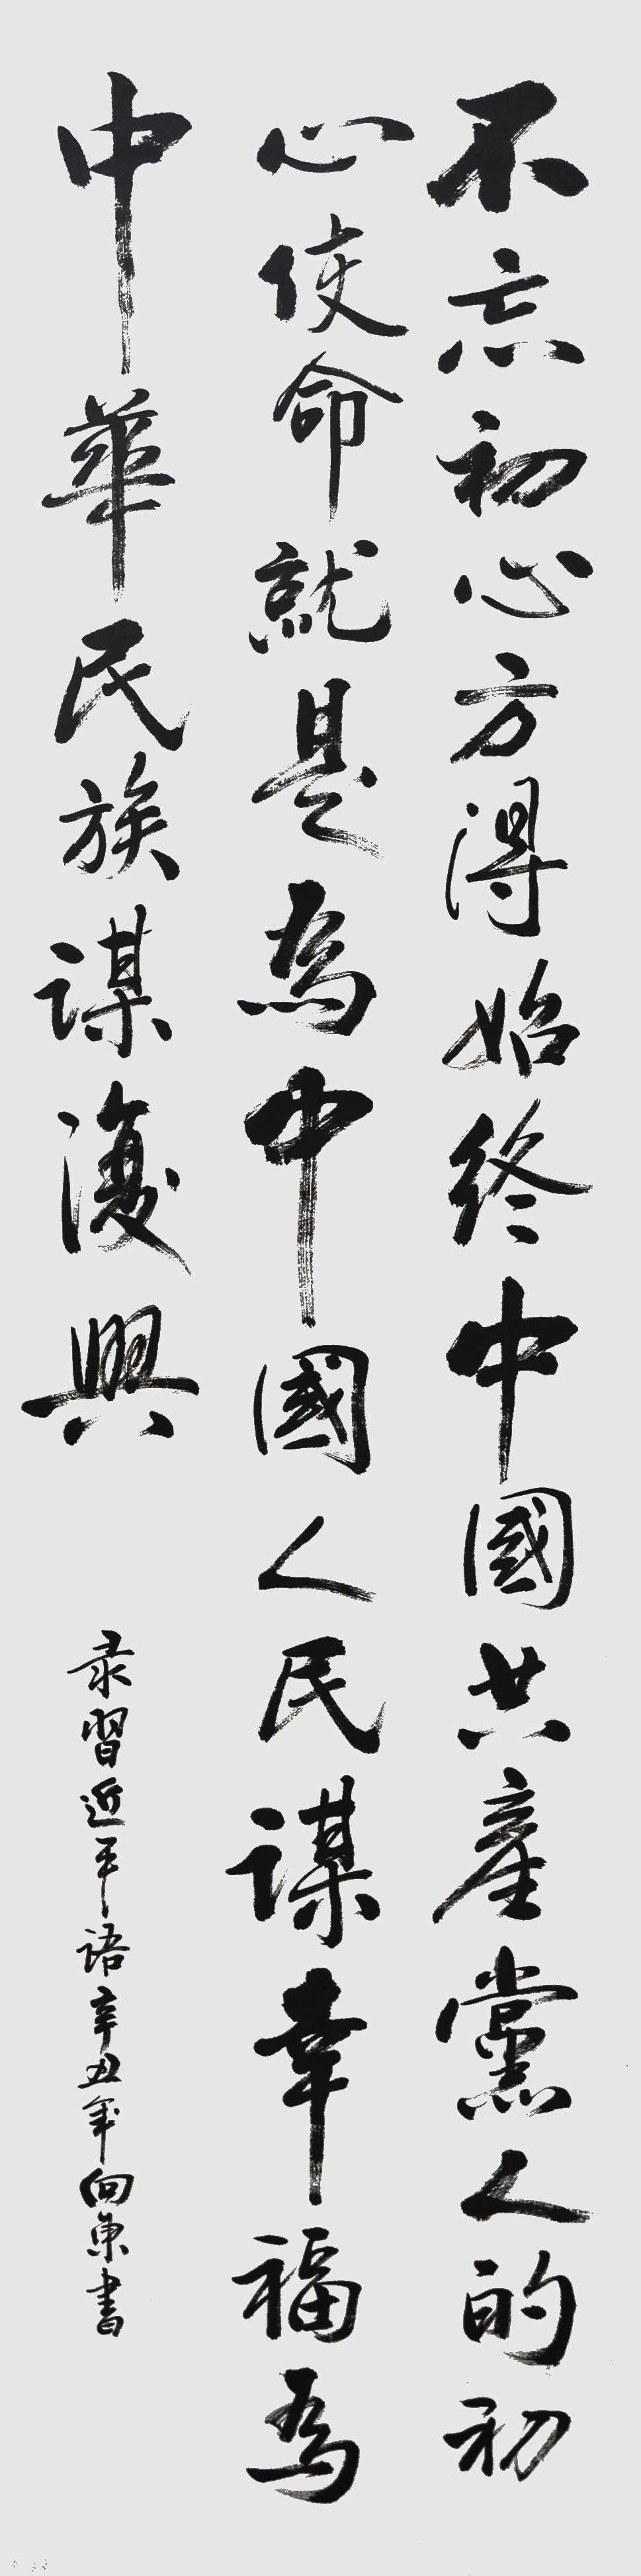 不忘初心方得始终中國共產黨人的初
心使命就是為中國人民謀幸福為
中華民族謀復興
录習近平语辛丑年向東書